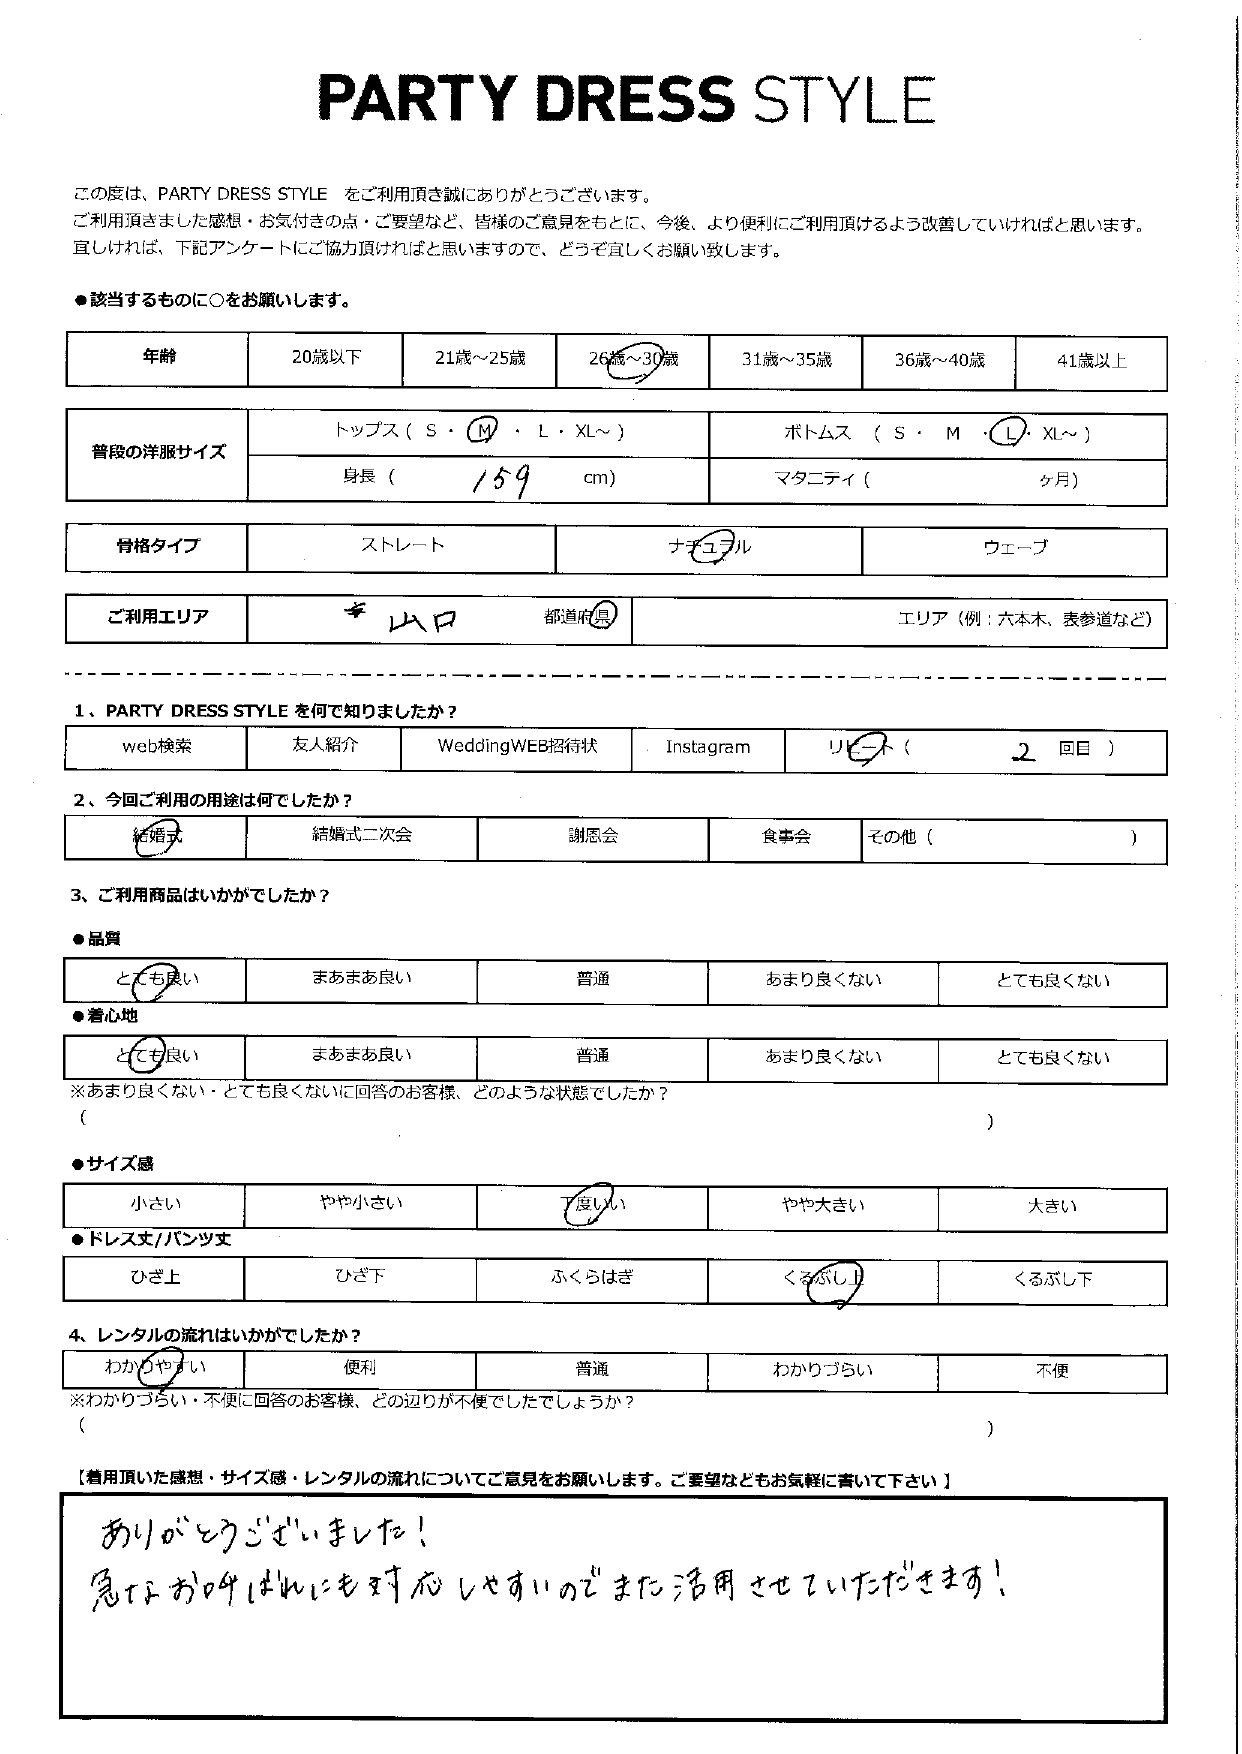 PARTY DRESS STYLE
この度は、PARTY DRESS STYLE をご利用頂き誠にありがとうございます。
ご利用頂きました感想・お気付きの点・ご要望など、皆様のご意見をもとに、今後、より便利にご利用頂けるよう改善していければと思います。
宜しければ、下記アンケートにご協力頂ければと思いますので、どうぞ宜しくお願い致します。
●該当するものに○をお願いします。
年齢 20歳以下 21歳～25歳 26歳～30歳 31歳～35歳 36歳～40歳 41歳以上
普段の洋服サイズ トップス ( S ・ M ・ L ・ XL～ ) ボトムス ( S ・ M ・ L ・ XL～ )
身長 ( 159 cm) マタニティ ( ヶ月)
骨格タイプ ストレート ナチュラル ウェーブ
ご利用エリア 山口 都道府県 エリア（例：六本木、表参道など）
1、PARTY DRESS STYLE を何で知りましたか？
web検索 友人紹介 WeddingWEB招待状 Instagram リピート ( 2 回目 )
2、今回ご利用の用途は何でしたか？
結婚式 結婚式二次会 謝恩会 食事会 その他 ( )
3、ご利用商品はいかがでしたか？
●品質
とても良い まあまあ良い 普通 あまり良くない とても良くない
●着心地
とても良い まあまあ良い 普通 あまり良くない とても良くない
※あまり良くない・とても良くないに回答のお客様、どのような状態でしたか？
( )
●サイズ感
小さい やや小さい 丁度いい やや大きい 大きい
●ドレス丈/パンツ丈
ひざ上 ひざ下 ふくらはぎ くるぶし上 くるぶし下
4、レンタルの流れはいかがでしたか？
わかりやすい 便利 普通 わかりづらい 不便
※わかりづらい・不便に回答のお客様、どの辺りが不便でしたでしょうか？
( )
【着用頂いた感想・サイズ感・レンタルの流れについてご意見をお願いします。ご要望などもお気軽に書いて下さい】
ありがとうございました！
急なお呼ばれにも対応しやすいのでまた活用させていただきます！